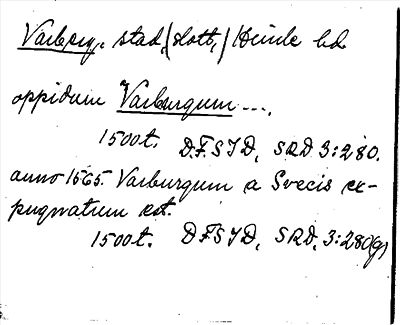 Varberg, stad, (slott,) Himle hd
oppidum Varburgum ....
1500t. D.F.S.J.D, SRD 3:280.
anno 1565. Varburgum a Svecis ex-
pugnatum est.
1500t. D.F.S.J.D, SRD, 3:280(9)